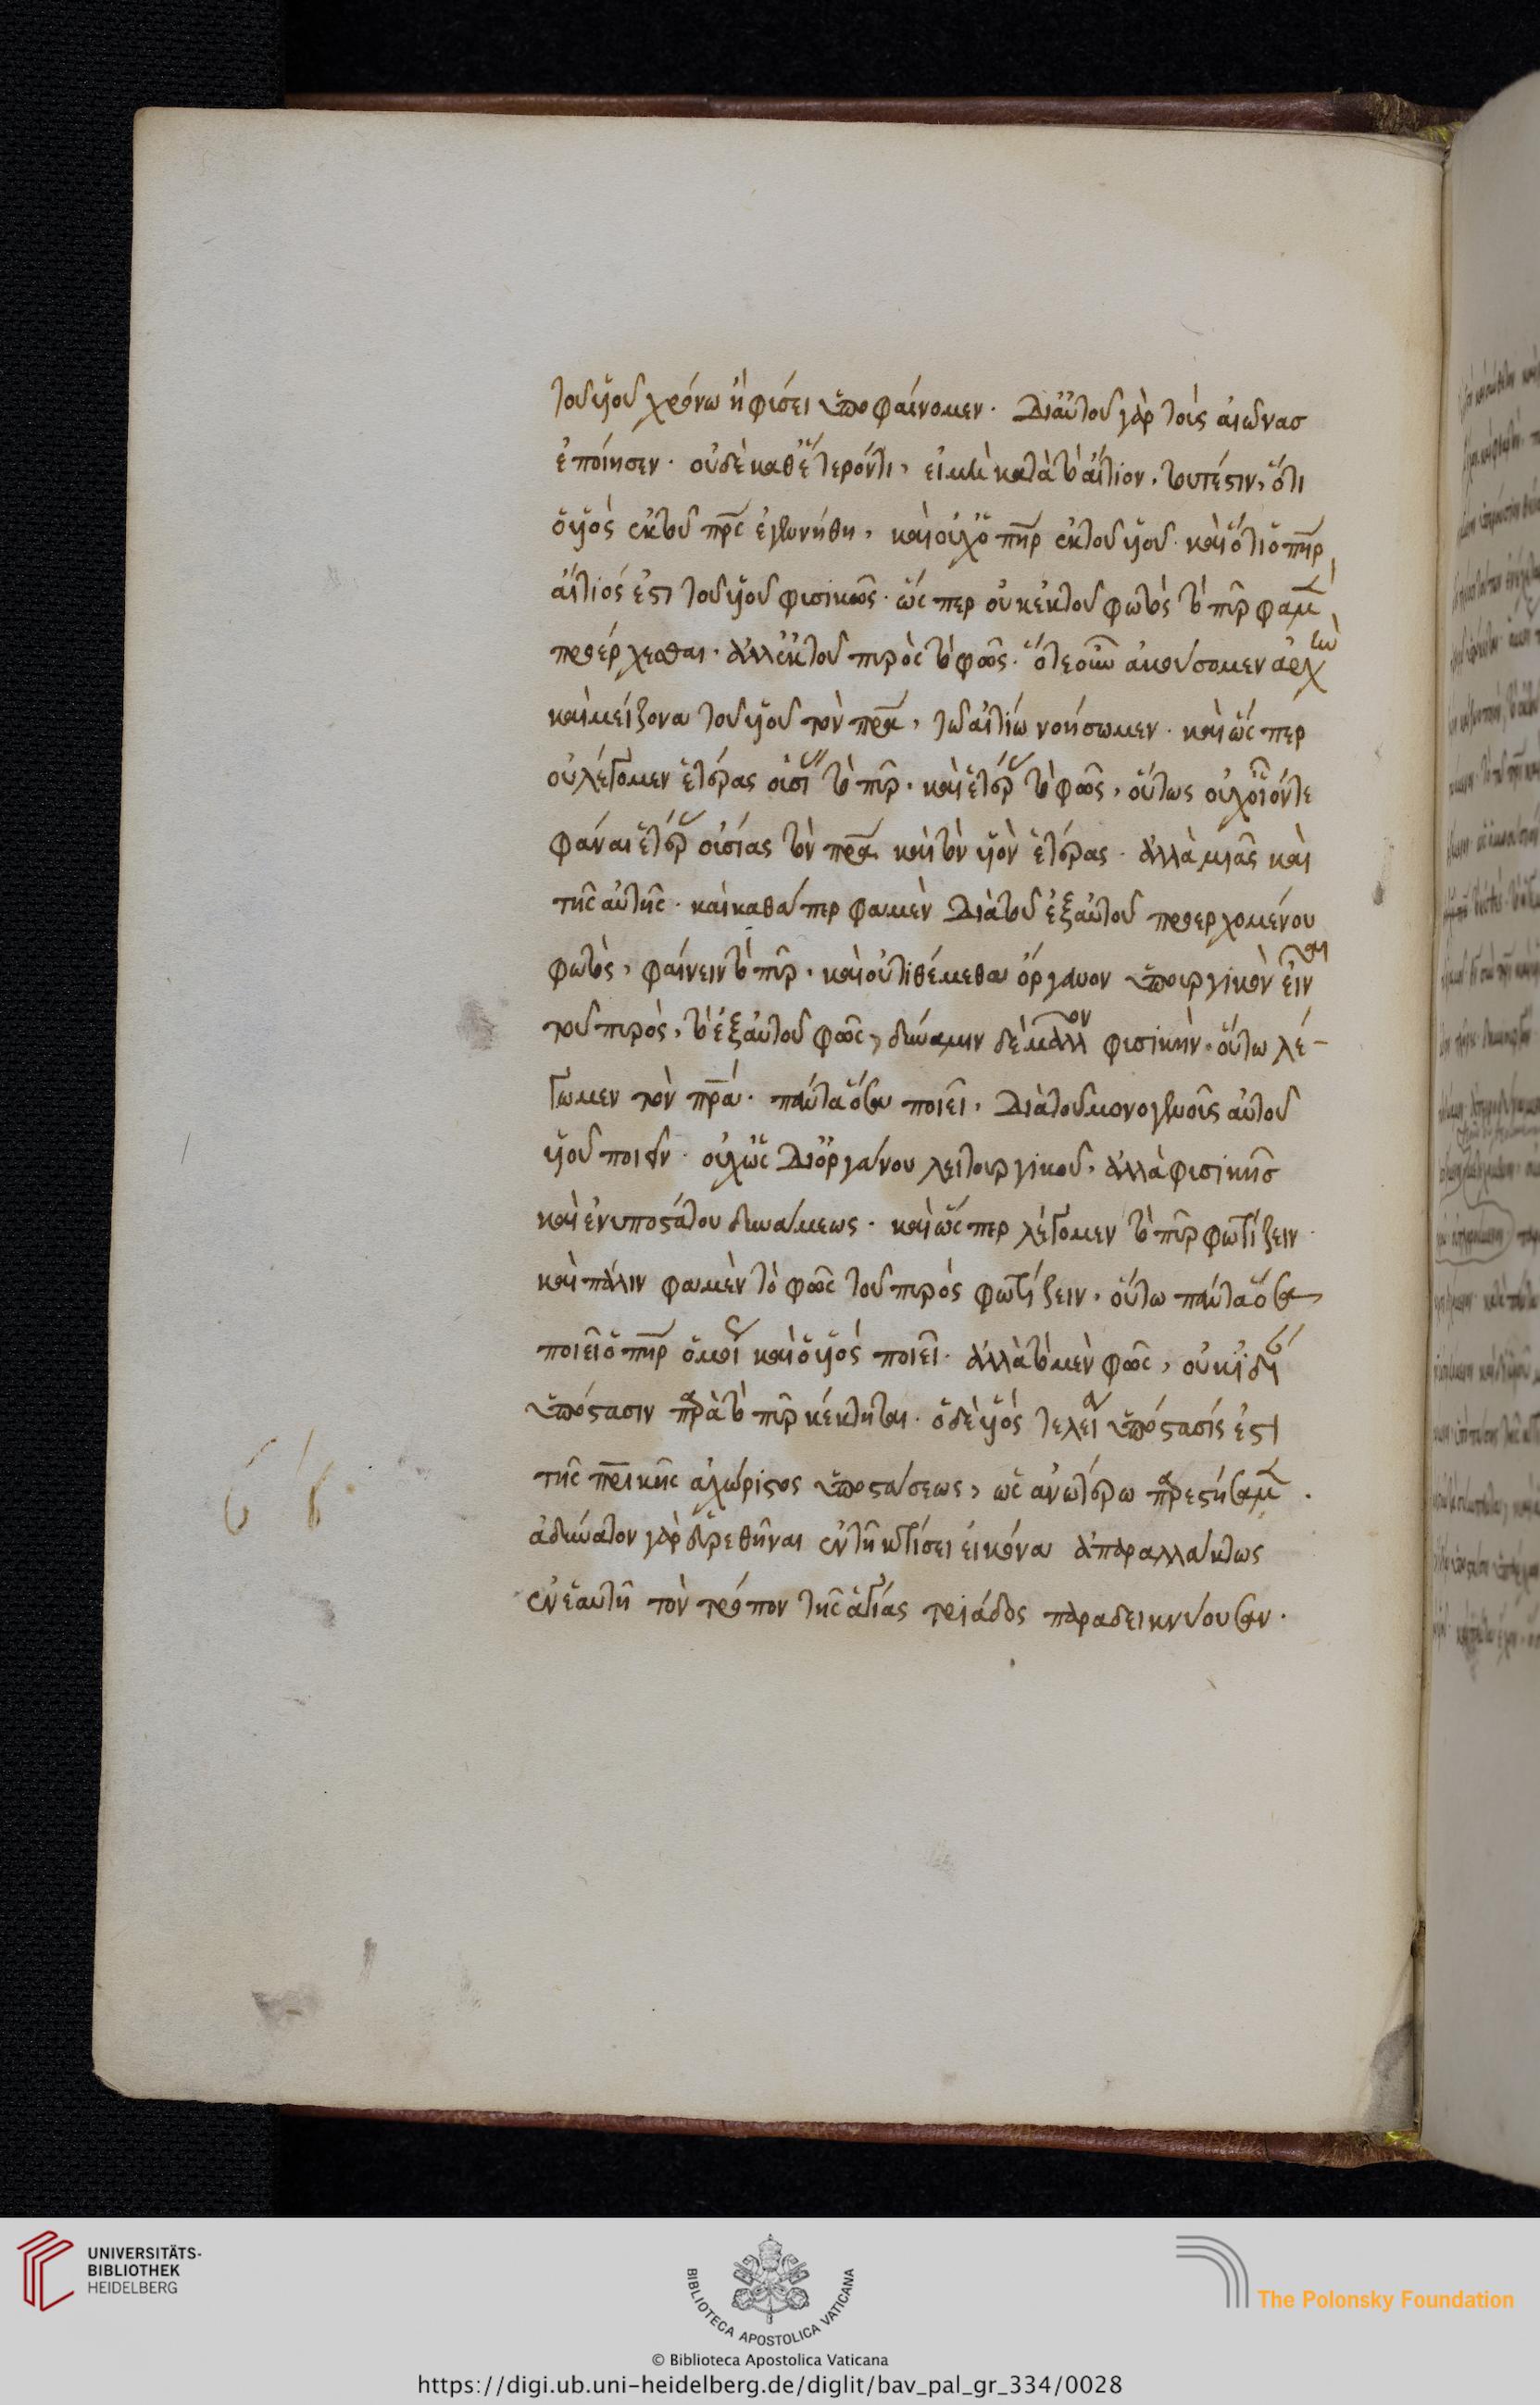 τοῦ υἱοῦ χρόνω ἢ φύσει ὑποφαίνομεν· διαὐτοῦ γὰρ τοὺς αἰῶνασ
ἐποίησεν· οὐδὲ καθἕτερόντι, εἰ μὴ κατὰ τὸ αἴτιον, τουτέστιν, ὅτι
ὁ υἱὸς ἐκ τοῦ πρς ἐγεννήθη, καὶ οὐχ ὁ πηρ ἐκ τοῦ υἱοῦ· καὶ ὅτι ὁ πηρ
αἴτιός ἐστι τοῦ υἱοῦ φυσικῶς· ὥσπερ οὐκ ἐκ τοῦ φωτὸς τὸ πῦρ φαμ
προέρχεσθαι· ἀλλ ἐκ τοῦ πυρὸς τὸ φῶς· ὅτε οὖν ἀκούσομεν ἀρχὴν
καὶ μείζονα τοῦ υἱοῦ τὸν πρα, τῶ αἰτίω νοήσωμεν· καὶ ὥσπερ
οὐ λέγομεν ἑτέρας οὐσί τὸ πῦρ· καὶ ἑτέρ τὸ φῶς, οὕτως οὐχ οἷόντε
φάναι ἑτέρ οὐσίας τὸν πρα καὶ τὸν υἱὸν ἑτέρας· ἀλλὰ μιᾶς καὶ
τῆς αὐτῆς· καὶ καθάπερ φαμὲν διὰ τοῦ ἐξ αὐτοῦ προερχομένου
φωτὸς, φαίνειν τὸ πῦρ· καὶ οὐ τιθέμεθα ὄργανον ὑπουργικὸν εἶναι
τοῦ πυρὸς, τὸ ἐξ αὐτοῦ φῶς, δύναμιν δὲ μᾶλλον φυσικήν· οὕτω λέ-
γωμεν τὸν πρα· πάντα ὅσα ποιεῖ, διὰ τοῦ μονογενοῦς αὐτοῦ
υἱοῦ ποιεῖν· οὐχ ὡς διὀργάνου λειτουργικοῦ, ἀλλὰ φυσικῆσ
καὶ ἐνυποστάτου δυνάμεως· καὶ ὥσπερ λέγομεν τὸ πῦρ φωτίζειν
καὶ πάλιν φαμὲν τὸ φῶς τοῦ πυρὸς φωτίζειν, οὕτω πάντα ὅσα
ποιεῖ ὁ πηρ ὁμοί καὶ ὁ υἱὸς ποιεῖ· ἀλλὰ τὸ μὲν φῶς, οὐκ ἰδί
ὑπόστασιν παρὰ τὸ πῦρ κέκτηται· ὁ δὲ υἱὸς τελεί ὑπόστασίς ἐστι
τῆς πρικῆς ἀχώριστος ὑποστάσεως, ὡς ἀνωτέρω παρεστήσαμ·
ἀδύνατον γὰρ εὑρεθῆναι ἐν τῆ κτίσει εἰκόνα ἀπαραλλάκτως
ἐν ἑαυτῆ τὸν τρόπον τῆς ἁγίας τριάδος παραδεικνύουσαν·
UNIVERSITÄTS-
BIBLIOTHEK
HEIDELBERG
BIBLIOTECA APOSTOLICA VATICANA
The Polonsky Foundation
© Biblioteca Apostolica Vaticana
https://digi.ub.uni-heidelberg.de/diglit/bav_pal_gr_334/0028